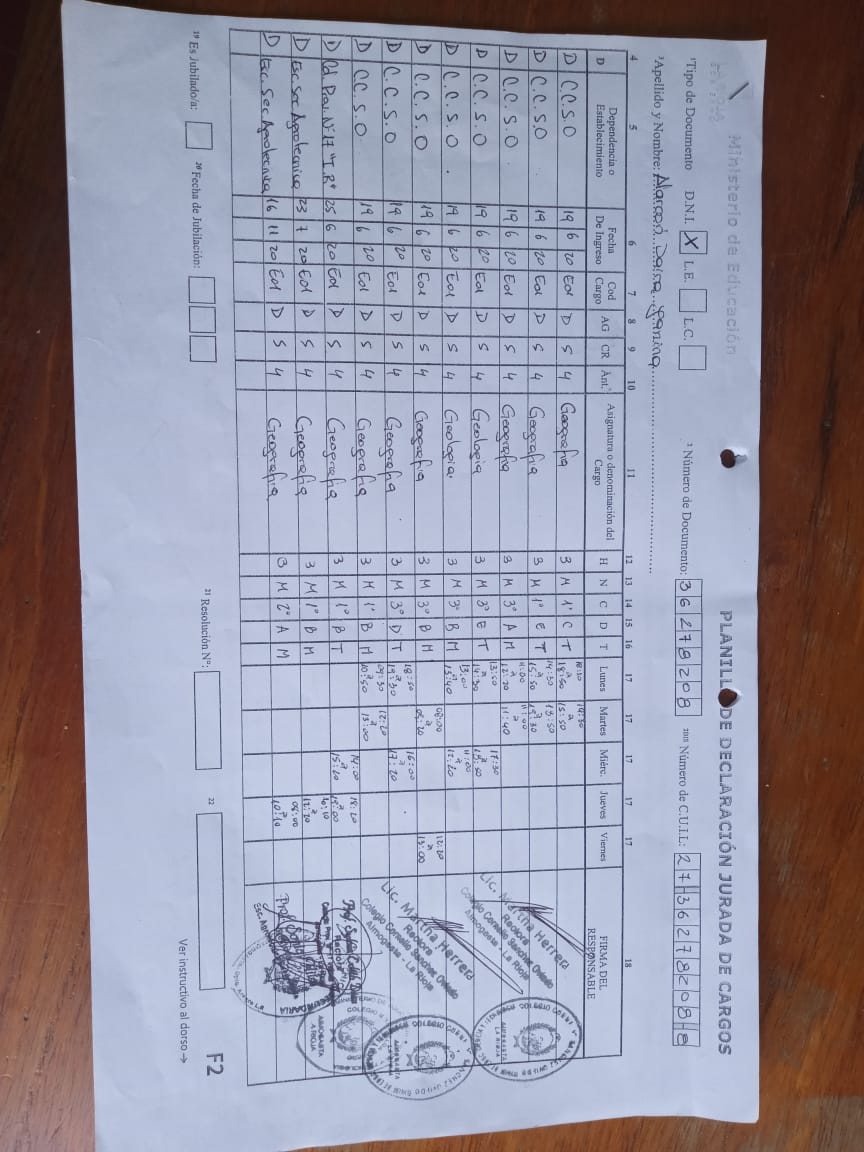 Ministerio de Educación
PLANILLA DE DECLARACIÓN JURADA DE CARGOS
¹Tipo de Documento D.N.I. X L.E. L.C. ² Número de Documento: 36278208 ²ᵇⁱˢ Número de C.U.I.L: 27 36278208 8
³Apellido y Nombre:
4 5 6 7 8 9 10 11 12 13 14 15 16 17 17 17 17 17 18
D Dependencia o Establecimiento Fecha De Ingreso Cod Cargo AG CR Ant. Asignatura o denominación del Cargo H N C D T Lunes Martes Miérc. Jueves Viernes FIRMA DEL RESPONSABLE
D C.C.S.O 19 6 20 Eol D S 4 Geografia 3 M 1° C T 18:50 14:30 a 15:50
D C.C.S.O 19 6 20 Eol D S 4 Geografia 3 M 1° E T 14:30 a 15:50 13:50
D C.C.S.O 19 6 20 Eol D S 4 Geografia 3 M 3° A M 11:00 a 12:20 11:00 a 11:40
D C.C.S.O 19 6 20 Eol D S 4 Geologia 3 M 3° E T 13:50 a 14:30 17:30 a 18:50
D C.C.S.O. 19 6 20 Eol D S 4 Geologia. 3 M 3° B M 13:00 a 13:40 11:00 a 12:20
D C.C.S.O 19 6 20 Eol D S 4 Geografia 3 M 3° B M 08:00 a 09:20 12:20 a 13:00
D C.C.S.O 19 6 20 Eol D S 4 Geografia 3 M 3° D T 18:50 a 19:30 16:00 a 17:20
D C.C.S.O 19 6 20 Eol D S 4 Geografia 3 M 1° B M 09:30 a 10:50 12:20 a 13:00
D Col Prov. N° 17 25 6 20 Eol D S 4 Geografia 3 M 1° B T 14:00 a 15:20 18:20 a 19:00
D Esc Sec Agrotecnica 23 7 20 Eol D S 4 Geografia 3 M 1° B M 10:10 a 12:20
D Esc. Sec Agrotecnica 16 11 20 Eol D S 4 Geografia 3 M 2° A M 08:00 a 10:10
Lic. Martha Herrera
Rectora
Colegio Cornelio Sanchez Oviedo
Aimogasta - La Rioja
Lic. Martha Herrera
Rectora
Colegio Cornelio Sanchez Oviedo
Aimogasta - La Rioja
¹⁹ Es Jubilado/a: ²⁰ Fecha de Jubilación: ²¹ Resolución N°: ²²
Ver instructivo al dorso →
F2